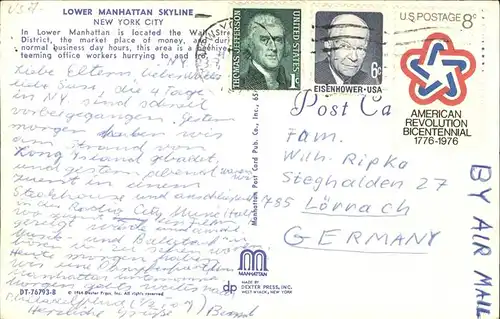 LOWER MANHATTAN SKYLINE
NEW YORK CITY
In Lower Manhattan is located the Wall Stre
District, the market place of money, and dur
normal business day hours, this area is a beehive
teeming office workers hurrying to and fro.
Liebe Eltern,
liebe Susi, die 4 Tage
in NY. sind schnell
vorbeigegangen. Gestern
morgen haben wir
am Strand von
Long Island gebadet,
und gestern abend waren wir
zuerst in einem
Steakhouse und anschließend
in der Radio City Music Hall
wo zuerst ein Film
gezeigt wurde und
Musik- und Ballett
Heute morgen haben
wir eine
Manhattan
morgen geht's weiter nach
Philadelphia
Herzliche Grüße Bernd
DT-76793-B
© 1964 Dexter Press, Inc. All rights reserved.
Manhattan Post Card Pub. Co., Inc., 65
MANHATTAN
MADE BY
dp DEXTER PRESS, INC.
WEST NYACK, NEW YORK
THOMAS JEFFERSON
UNITED STATES
1c
6c
EISENHOWER·USA
U.S. POSTAGE 8c
AMERICAN
REVOLUTION
BICENTENNIAL
1776-1976
Post Ca
Fam.
Wilh. Ripka
Steghalden 27
785 Lörrach
GERMANY
BY AIR MAIL